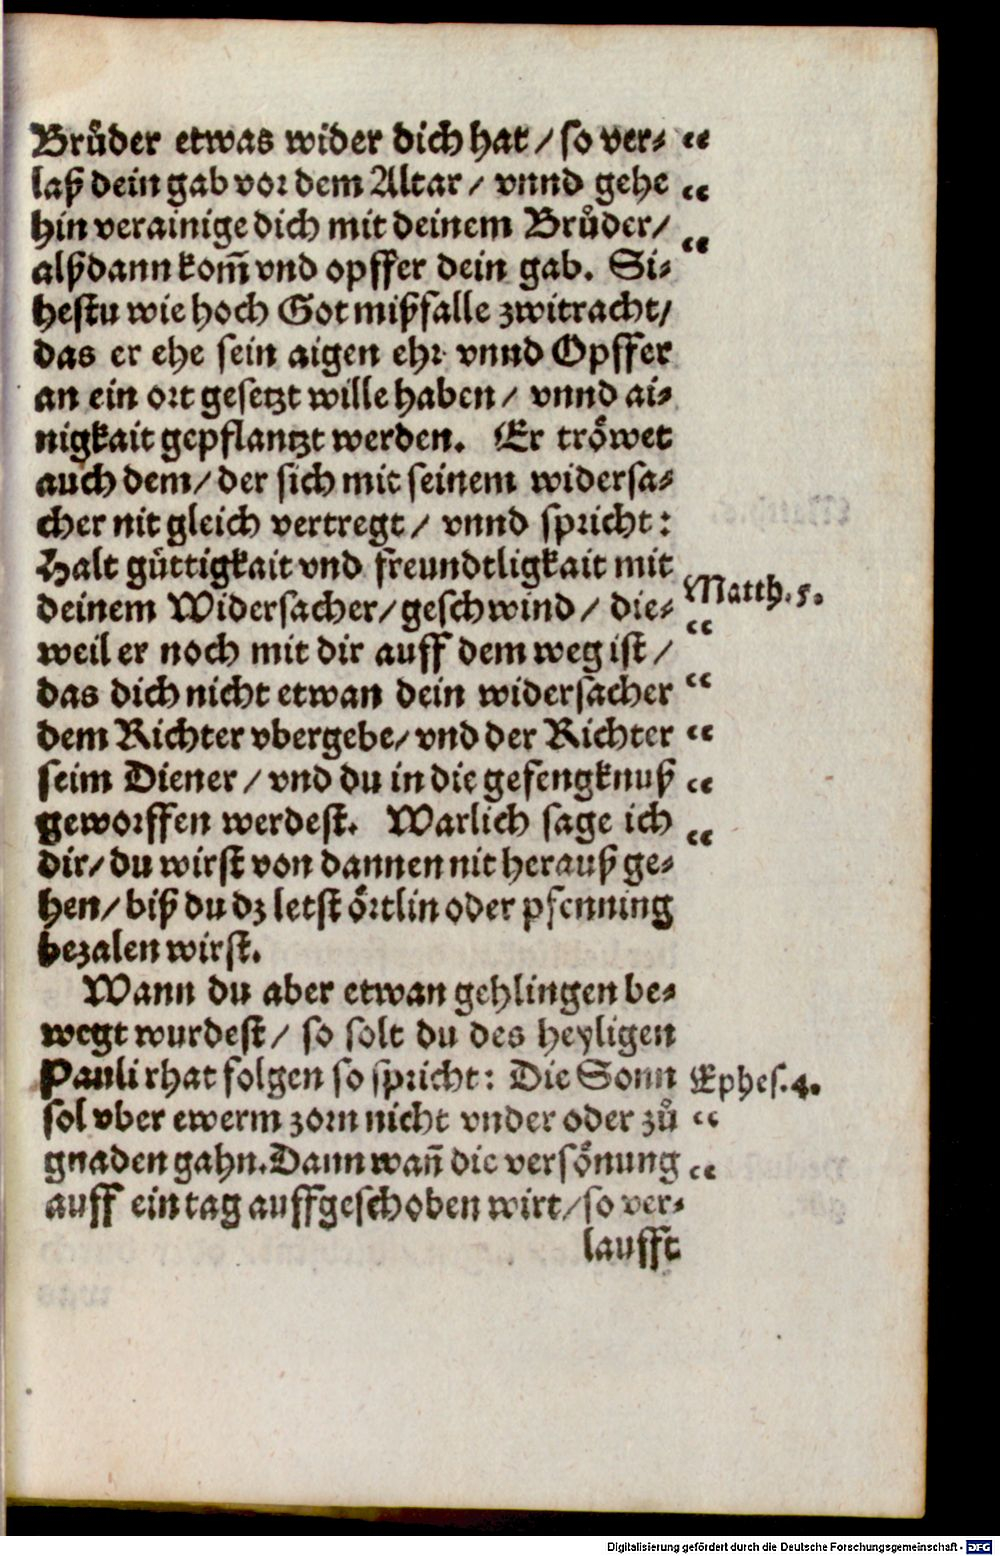 Bruͦder etwas wider dich hat / so ver⸗ “
laß dein gab vor dem Altar / vnnd gehe “
hin verainige dich mit deinem Bruͦder / “
alßdann kom̃ vnd opffer dein gab. Si⸗
hestu wie hoch Got mißfalle zwitracht /
das er ehe sein aigen ehr vnnd Opffer
an ein ort gesetzt wille haben / vnnd ai⸗
nigkait gepflantzt werden. Er troͤwet
auch dem / der sich mit seinem widersa⸗
cher nit gleich vertregt / vnnd spricht:
Halt guͤttigkait vnd freundtligkait mit
deinem Widersacher / geschwind / die⸗ Matth. 5. “
weil er noch mit dir auff dem weg ist /
das dich nicht etwan dein widersacher “
dem Richter vbergebe / vnd der Richter “
seim Diener / vnd du in die gefengknuß “
geworffen werdest. Warlich sage ich “
dir / du wirst von dannen nit herauß ge⸗
hen / biß du dz letst oͤrtlin oder pfenning
bezalen wirst.
Wann du aber etwan gehlingen be⸗
wegt wurdest / so solt du des heyligen
Pauli rhat folgen so spricht: Die Sonn Ephes. 4.
sol vber ewerm zorn nicht vnder oder zuͦ “
gnaden gahn. Dann wañ die versoͤnung “
auff ein tag auffgeschoben wirt / so ver⸗
laufft
Digitalisierung gefördert durch die Deutsche Forschungsgemeinschaft - DFG